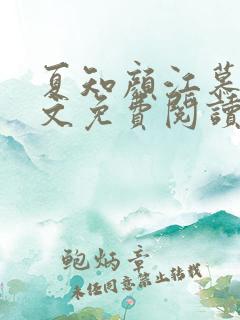 夏知顏江慕
文免費閱讀
鮑炳章
未经同意禁止转载